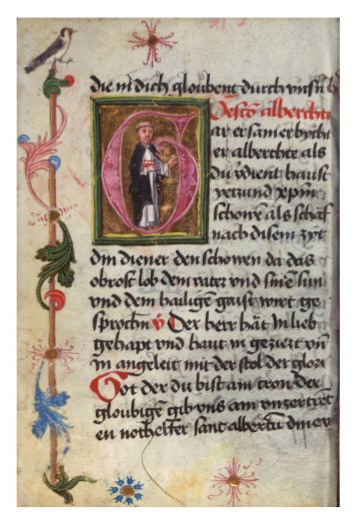 die in dich gloubent durch vnsñ h
De scō alberchto
ar ersamer bycht
er alberchte als
du dient haust
yetzund xpm̄
schowē als schaf
nach disem zyt
din diener den schowen da das
obrost lob dem vater vnd sinē sun
vnd dem hailigē gaist wirt ge
sprochn̄ v̄ Der herr hāt in lieb
gehapt vnd haut in geziert vn̄
in angeleit mit der stol der glori
Got der du bist ain cron der
gloubigē gib vns ain vnzertret
en nothelfer sant albertū dinen